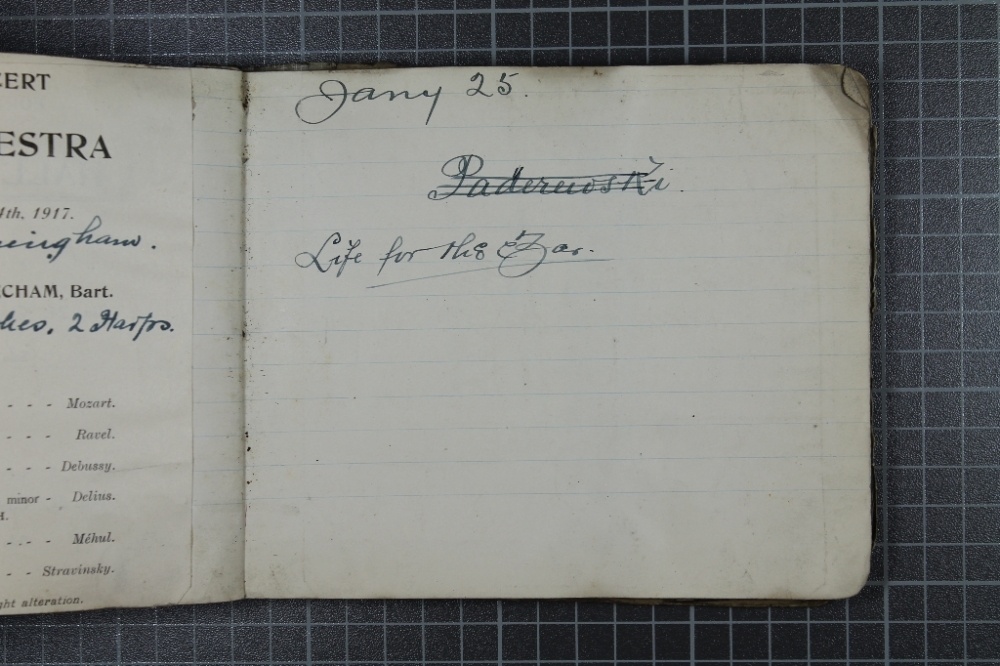 CERT
ESTRA
4th, 1917.
ningham.
CHAM, Bart.
2 Harps.
- - - Mozart.
- - - Ravel.
- - - Debussy.
minor - Delius.
H.
- - - Méhul.
- - Stravinsky.
ght alteration.
Jany 25.
Paderewski.
Life for the Czar.